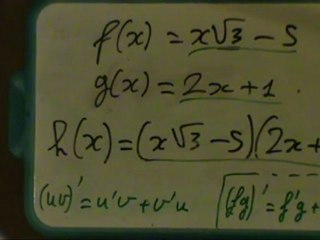 f(x) = x√3 - 5
g(x) = 2x + 1
h(x) = (x√3 - 5)(2x +
(uv)' = u'v + v'u
(fg)' = f'g +